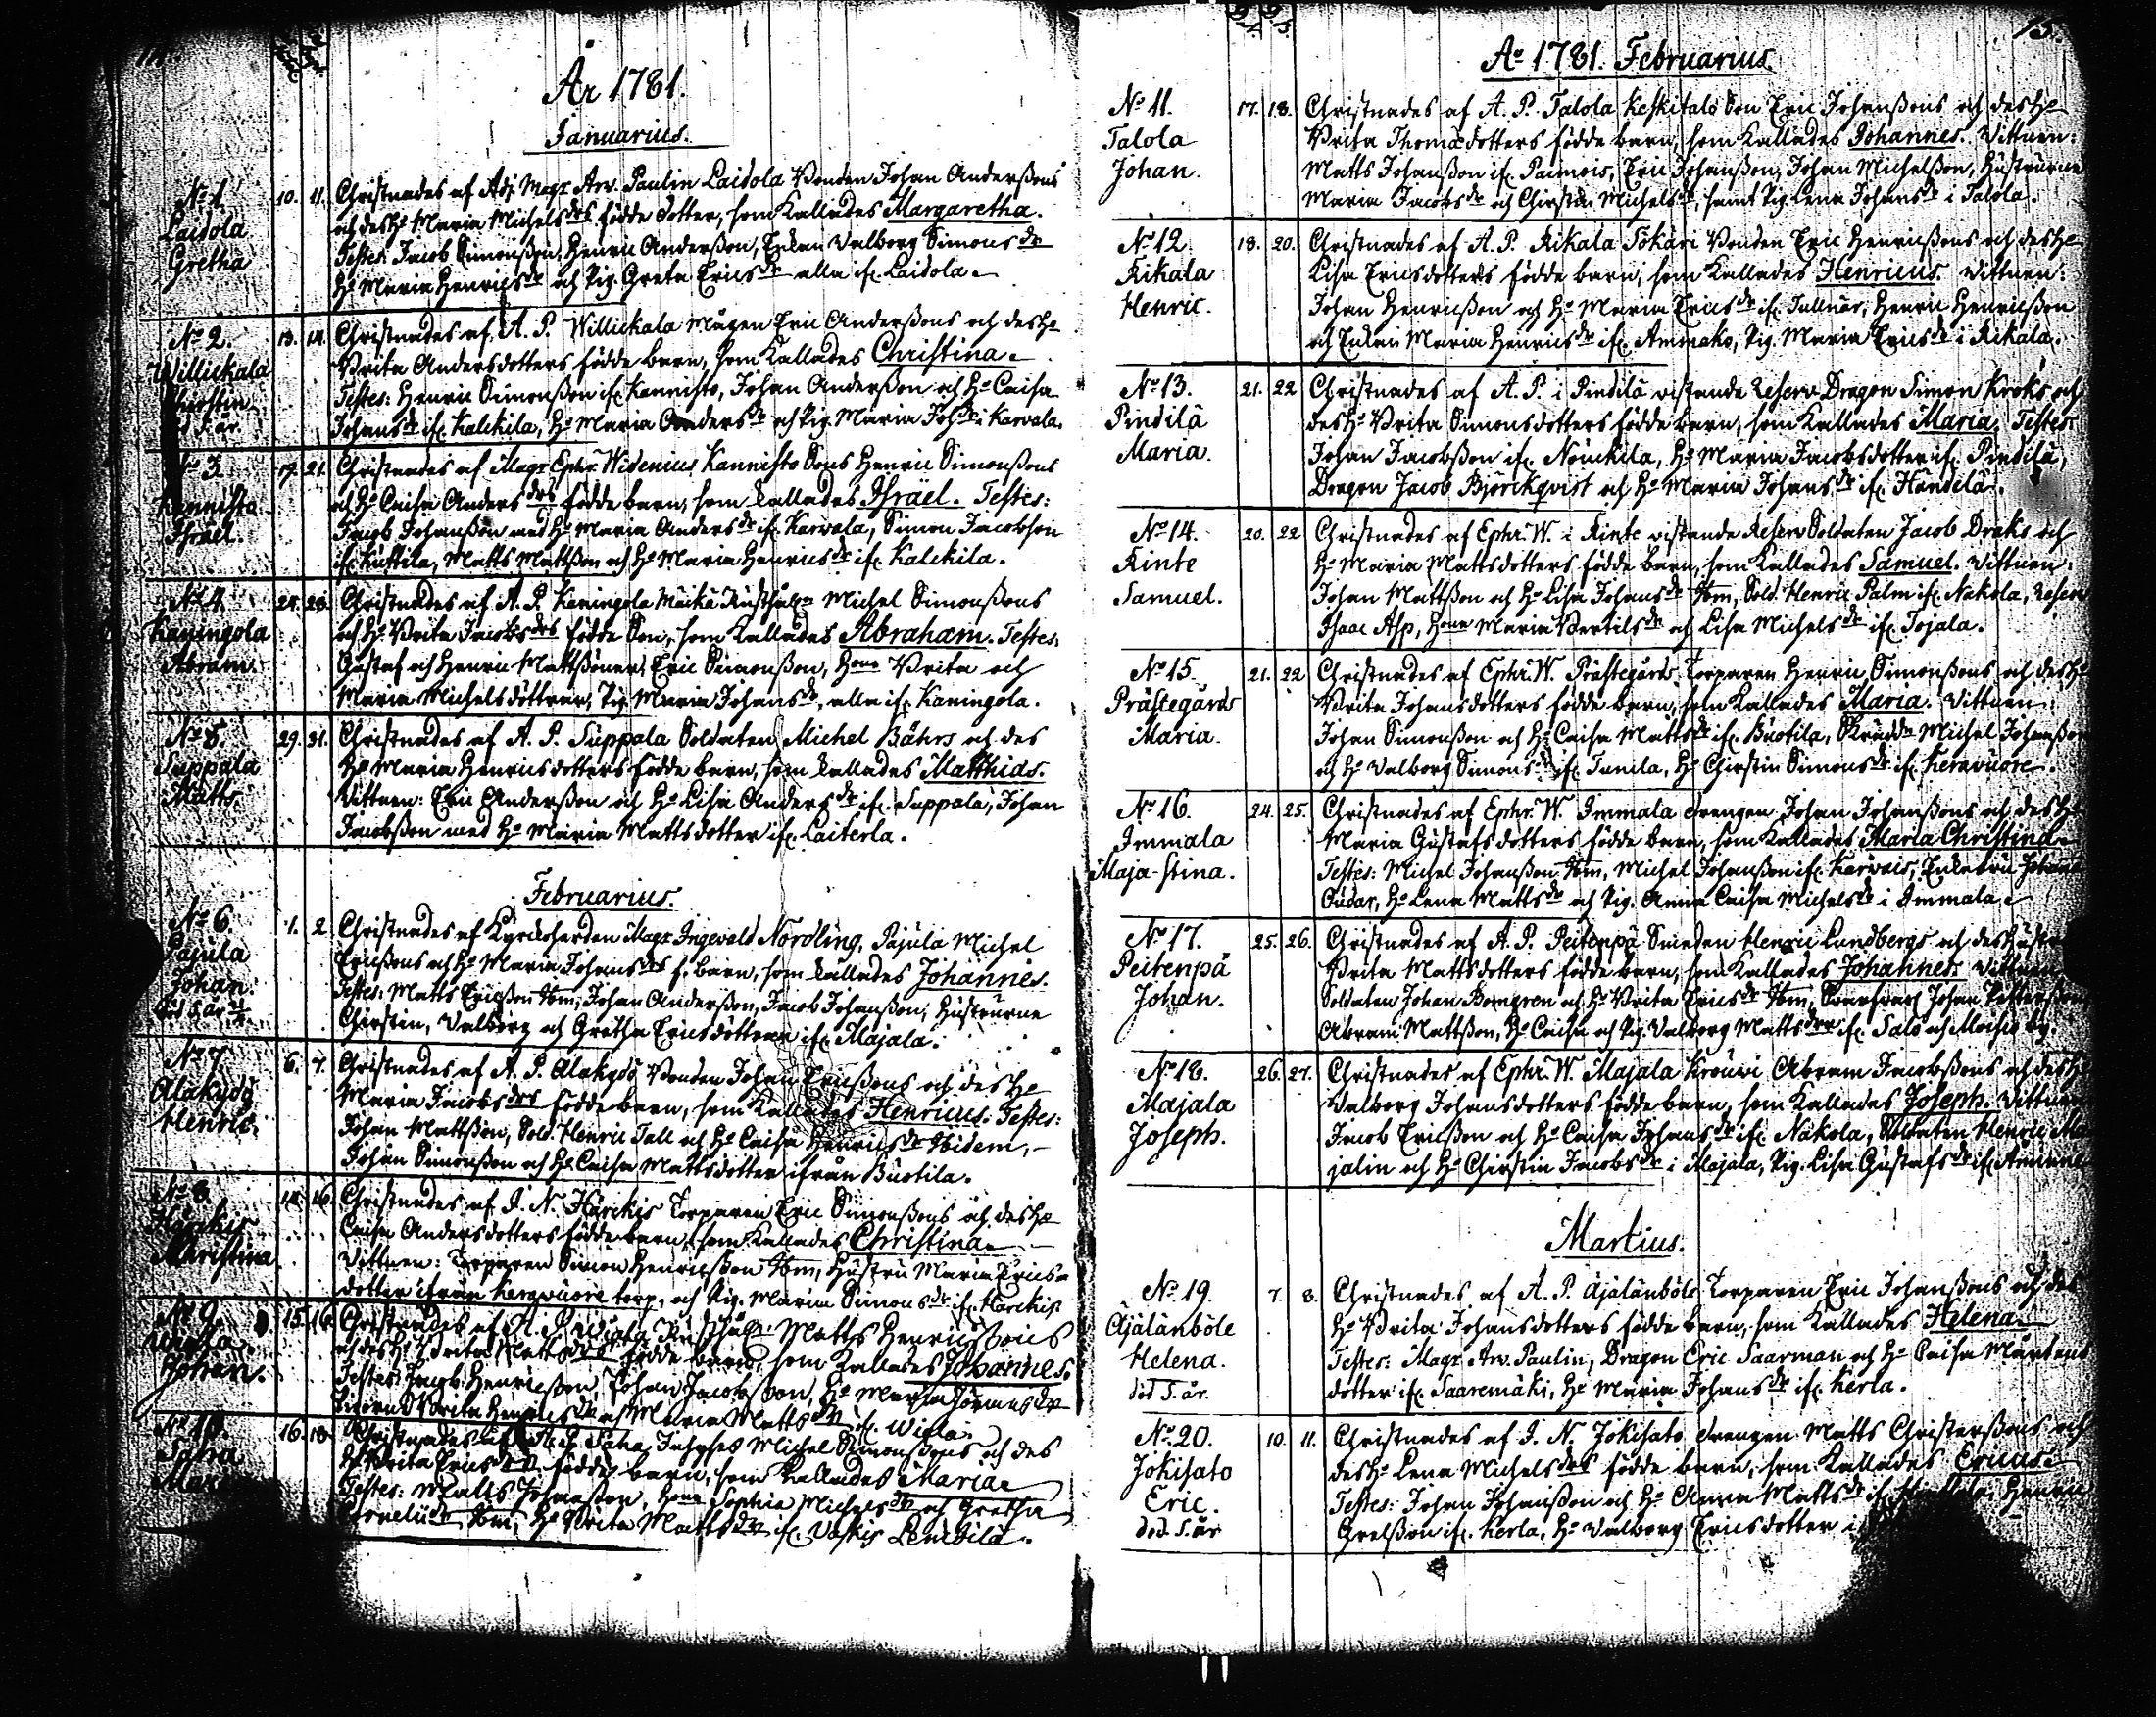 År 1781.
Januarius.
No 1. Laidola Gretha
10. 11. Christnades af Adj. Magr Arv. Paulin Laidola Bonden Johan Anderßons
och des Ho Maria Michels drs födde dotter, som kallades Margaretha.
Testes: Jacob Simonßon, Henric Anderßon, Enkan Valborg Simons dr
Ho Maria Henrics dr och Pig. Greta Erics dr alla ifr. Laidola.
No 2. Willickala Christin död 5. år.
13. 14. Christnades af A. P. Willickala Mågen Eric Anderßons och des Ho
Brita Andersdotters födde barn, som kallades Christina.
Testes: Henric Simonßon ifr. Kannisto, Johan Anderßon och Ho Caisa
Johans dr ifr. Kalckila, Ho Maria Anders dr och Pig. Maria Joh dr i Karvala.
No 3. Kannisto Israel.
19. 21. Christnades af Magr Ephr. Widenius Kannisto Sons Henric Simonßons
och Ho Caisa Anders drs födde barn, som kallades Israël. Testes:
Jacob Johanßon med Ho Maria Anders dr ifr. Karvala, Simon Jacobson
ifr. Kuttila, Matts Mattßon och Ho Maria Henrics dr ifr. Kalckila.
No 4. Kaningola Abram.
27. 28. Christnades af A. P. Kaningola Mäikä Rusthåln Michel Simonßons
och Ho Brita Jacobs drs födde Son, som kallades Abraham. Testes:
Gustaf och Henric Mattßöner, Eric Simonßon, Hona Brita och
Maria Michelsdöttrar, Pig. Maria Johans dr, alla ifr. Kaningola.
No 5. Suppala Matts.
29. 31. Christnades af A. P. Suppala Soldaten Michel Bährs och des
Ho Maria Henricsdotters födde barn, som kallades Matthias.
Vittnen: Eric Anderßon och Ho Lisa Anders dr ifr. Suppala, Johan
Jacobßon med Ho Maria Mattsdotter ifr. Laiterla.
Februarius.
No 6. Pajula Johan. död 5 år
1. 2. Christnades af Kyrckoherden Magr Ingevald Nordling, Pajula Michel
Ericßons och Ho Maria Johans drs f. barn, som kallades Johannes.
Testes: Matts Ericßon Ibm, Johan Anderßon, Jacob Johanßon, Hustrurne
Chirstin, Valborg och Gretha Ericsdöttrar ifr. Majala.
No 7. Alakydö Henric.
6. 7. Christnades af A. P. Alakydö Bonden Johan Ericßons och des Ho
Maria Jacobs drs födde barn, som kallades Henricus. Testes:
Johan Mattßon, Sold. Henric Tall och Ho Caisa Henrics dr Ibidem,
Johan Simonßon och Ho Caisa Mattsdotter ifrån Buotila.
No 8. Härckis Christina
14. 16. Christnades af I. N. Härckis Torparen Eric Simonßons och des Ho
Caisa Andersdotters födde barn, som kallades Christina.
Vittnen: Torparen Simon Henricßon Ibm, Hustru Maria Erics-
dotter ifrån Keravuore torp, och Pig. Maria Simons dr ifr. Härckis.
No 9. Johan.
15. 16. Christnades af A. P. Rusthåln Matts Henricßons
och des Ho Brita Matts drs födde barn, som kallades Johannes.
Testes: Jacob Henricßon, Johan Jacobsson, Ho Maria
Brita Henrics dr och Maria Matts dr ifr.
No 10. Saha Maria
16. 18. Christnades af A. P. Saha Inhyses Michel Simonßons och des
Ho Brita Erics drs födde barn, som kallades Maria
Testes: Matts Johanßon, Hona Sophia Michels dr och Gretha
Cornelii dr Ibm, Ho Brita Matts dr ifr. Vaskis Lembilä.
15.
Ao 1781. Februarius
No 11. Talola Johan.
17. 18. Christnades af A. P. Talola Keskitalo Son Eric Johanßons och des Ho
Brita Thomædotters födde barn, som kallades Johannes. Vittnen:
Matts Johanßon ifr. Paimois, Eric Johanßon, Johan Michelßon, Hustrurne
Maria Jacobs dr och Chirstin Michels dr, samt Pig. Lena Johans dr i Talola.
No 12. Rikala Henric.
18. 20. Christnades af A. P. Rikala Sokari Bonden Eric Henricßons och des Ho
Lisa Ericsdotters födde barn, som kallades Henricus. Vittnen:
Johan Henricßon och Ho Maria Erics dr ifr. Tallnär, Henric Henricßon
och Enkan Maria Henrics dr ifr. Ammako, Pig. Maria Erics dr i Rikala.
No 13. Pindilä Maria.
21. 22 Christnades af A. P. i Pindilä vistande Reserv Dragon Simon Kroks och
des Ho Brita Simonsdotters födde barn, som kallades Maria. Testes:
Johan Jacobßon ifr. Nouckila, Ho Maria Jacobsdotter ifr. Pindilä,
Dragon Jacob Björckqvist och Ho Maria Johans dr ifr. Händilä.
No 14. Rinte Samuel.
20. 22 Christnades af Ephr. W. i Rinte vistande Reserv Soldaten Jacob Draks och
Ho Maria Mattsdotters födde barn, som kallades Samuel. Vittnen:
Johan Mattßon och Ho Lisa Johans dr Ibm, Sold. Henric Palm ifr. Nakola, Reserv
Isaac Asp, Hona Maria Bertils dr och Lisa Michels dr ifr. Tojala.
No 15. Prästegårds Maria.
21. 22 Christnades af Ephr. W. Prästegårds Torparen Henric Simonßons och des Ho
Brita Johansdotters födde barn, som kallades Maria. Vittnen:
Johan Simonßon och Ho Caisa Matts dr ifr. Buotila, Skrädd. Michel Johanßon
och Ho Valborg Simons dr ifr. Junila, Ho Chirstin Simons dr ifr. Keravuore.
No 16. Immala Maja-Stina.
24. 25. Christnades af Ephr. W. Immala drengen Johan Johanßons och des Ho
Maria Gustafsdotters födde barn, som kallades Maria Christina
Testes: Michel Johanßon Ibm, Michel Johanßon ifr. Karvais,
Ho Lena Matts dr och Pig. Anna Caisa Michels dr i Immala.
No 17. Peitenpä Johan.
25. 26. Christnades af A. P. Peitenpä Smeden Henric Lundbergs och des Hustru
Brita Mattsdotters födde barn, som kallades Johannes. Vittnen
Soldaten Johan Bomgren och Ho Brita Erics dr Ibm, Johan Petterßon
Abram Mattßon, Ho Caisa och Pig. Valborg Matts drar ifr. Salo och Moisio by.
No 18. Majala Joseph.
26. 27. Christnades af Ephr. W. Majala Krouvi Abram Jacobßons och des Ho
Valborg Johansdotters födde barn, som kallades Joseph. Vittnen
Jacob Ericßon och Ho Caisa Johans dr ifr. Nakola, Soldaten Henric Ma
jalin och Ho Chirstin Jacobs dr i Majala, Pig. Lisa Gustafs dr ifr.
Martius.
No 19. Äjälänböle Helena. död 5. år.
7. 8. Christnades af A. P. Äjälänböle Torparen Eric Johanßons och des
Ho Brita Johansdotters födde barn, som kallades Helena.
Testes: Magr Arv. Paulin, Dragon Eric Saarman och Ho Caisa Mårtens
dotter ifr. Saaremäki, Ho Maria Johans dr ifr. Kerla.
No 20. Jokisato Eric. död. 5. år
10. 11. Christnades af I. N. Jokisato drengen Matts Christerßons och
des Ho Lena Michels drs födde barn, som kallades Ericus.
Testes: Johan Johanßon och Ho Anna Matts dr ifr. Henric
Grelsßon ifr. Kerla, Ho Valborg Ericsdotter